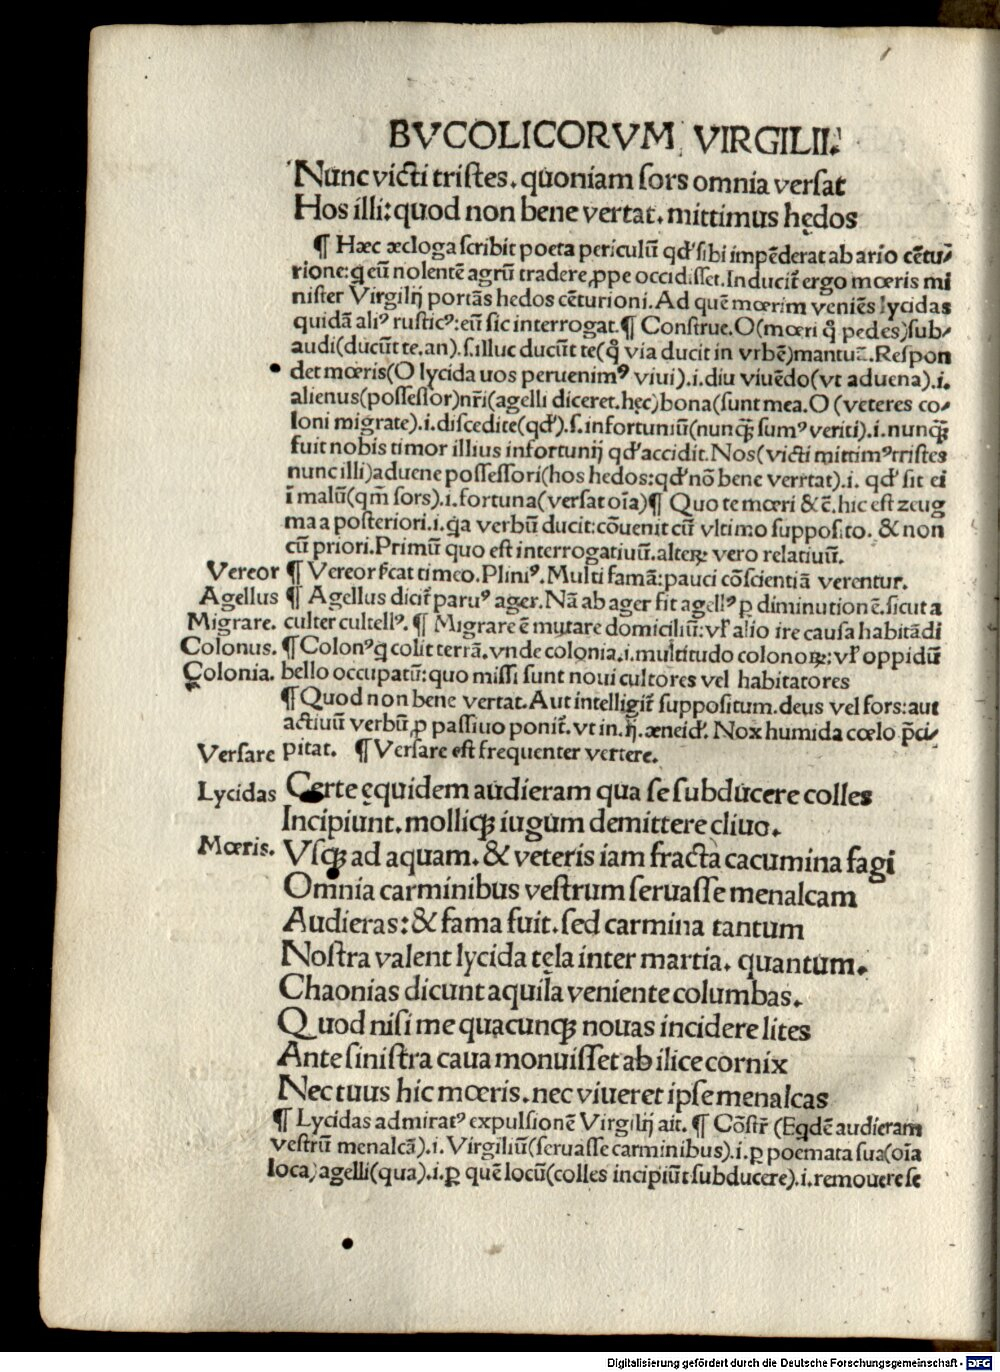 BVCOLICORVM VIRGILII.
Nunc victi tristes. quoniam sors omnia versat
Hos illi: quod non bene vertat. mittimus hędos
¶ Hæc æcloga scribit poeta periculū qđ sibi impēderat ab ario cētu/
rione: q̨ eū nolentē agrū tradere, ꝓpe occidisset. Inducit̃ ergo mœris mi
nister Virgilij portās hedos cēturioni. Ad quē mœrim veniēs lycidas
quidā aliꝰ rusticꝰ: eū sic interrogat. ¶ Construe. O (mœri q̊ pedes) sub/
audi (ducūt te. an). s. illuc ducūt te (q̊ via ducit in vrbē) mantuā. Respon
det mœris (O lycida uos peruenimꝰ viui). i. diu viuēdo (vt aduena). i.
alienus (possessor) nr̄i (agelli diceret. hęc) bona (sunt mea. O (veteres co/
loni migrate). i. discedite (qđ). s. infortuniū (nunqꝫ sumꝰ veriti). i. nunqꝫ
fuit nobis timor illius infortunij qđ accidit. Nos (victi mittimꝰ tristes
nunc illi) aduene possessori (hos hedos: qđ nō bene verrtat). i. qđ sit ei
ī malū (qm̄ sors). i. fortuna (versat oīa) ¶ Quo te mœri & c̄. hic est zeug
ma a posteriori. i. q̨a verbū ducit: cōuenit cū vltimo supposito. & non
cū priori. Primū quo est interrogatiuū. alteꝝ vero relatiuū.
Vereor ¶ Vereor sͨcat timeo. Pliniꝰ. Multi famā: pauci cōscientiā verentur.
Agellus ¶ Agellus dicit̃ paruꝰ ager. Nā ab ager fit agellꝰ ꝑ diminutionē. sicut a
Migrare. culter cultellꝰ. ¶ Migrare ē mutare domiciliū: vł alio ire causa habitādi
Colonus. ¶ Colonꝰ q̨ colit terrā. vnde colonia. i. multitudo colonoꝝ: vł oppidū
Colonia. bello occupatū: quo missi sunt noui cultores vel habitatores
¶ Quod non bene vertat. Aut intelligit̃ suppositum. deus vel fors: aut
actiuū verbū, ꝓ passiuo ponit̃. vt in. ij. æneid̓. Nox humida cœlo p̄ci/
Versare pitat. ¶ Versare est frequenter vertere.
Lycidas Certe ęquidem audieram qua se subducere colles
Incipiunt. molliqꝫ iugum demittere cliuo.
Mœris. Vsqꝫ ad aquam. & veteris iam fracta cacumina fagi
Omnia carminibus vestrum seruasse menalcam
Audieras: & fama fuit. sed carmina tantum
Nostra valent lycida tęla inter martia. quantum.
Chaonias dicunt aquila veniente columbas.
Quod nisi me quacunqꝫ nouas incidere lites
Ante sinistra caua monuisset ab ilice cornix
Nec tuus hic mœris. nec viueret ipse menalcas
¶ Lycidas admiratꝰ expulsionē Virgilij ait. ¶ Cōstr̃ (Eqdē audieram
vestrū menalcā). i. Virgiliū (seruasse carminibus). i. ꝑ poemata sua (oīa
loca) agelli (qua). i. ꝑ quē locū (colles incipiūt subducere). i. remouere se
Digitalisierung gefördert durch die Deutsche Forschungsgemeinschaft - DFG